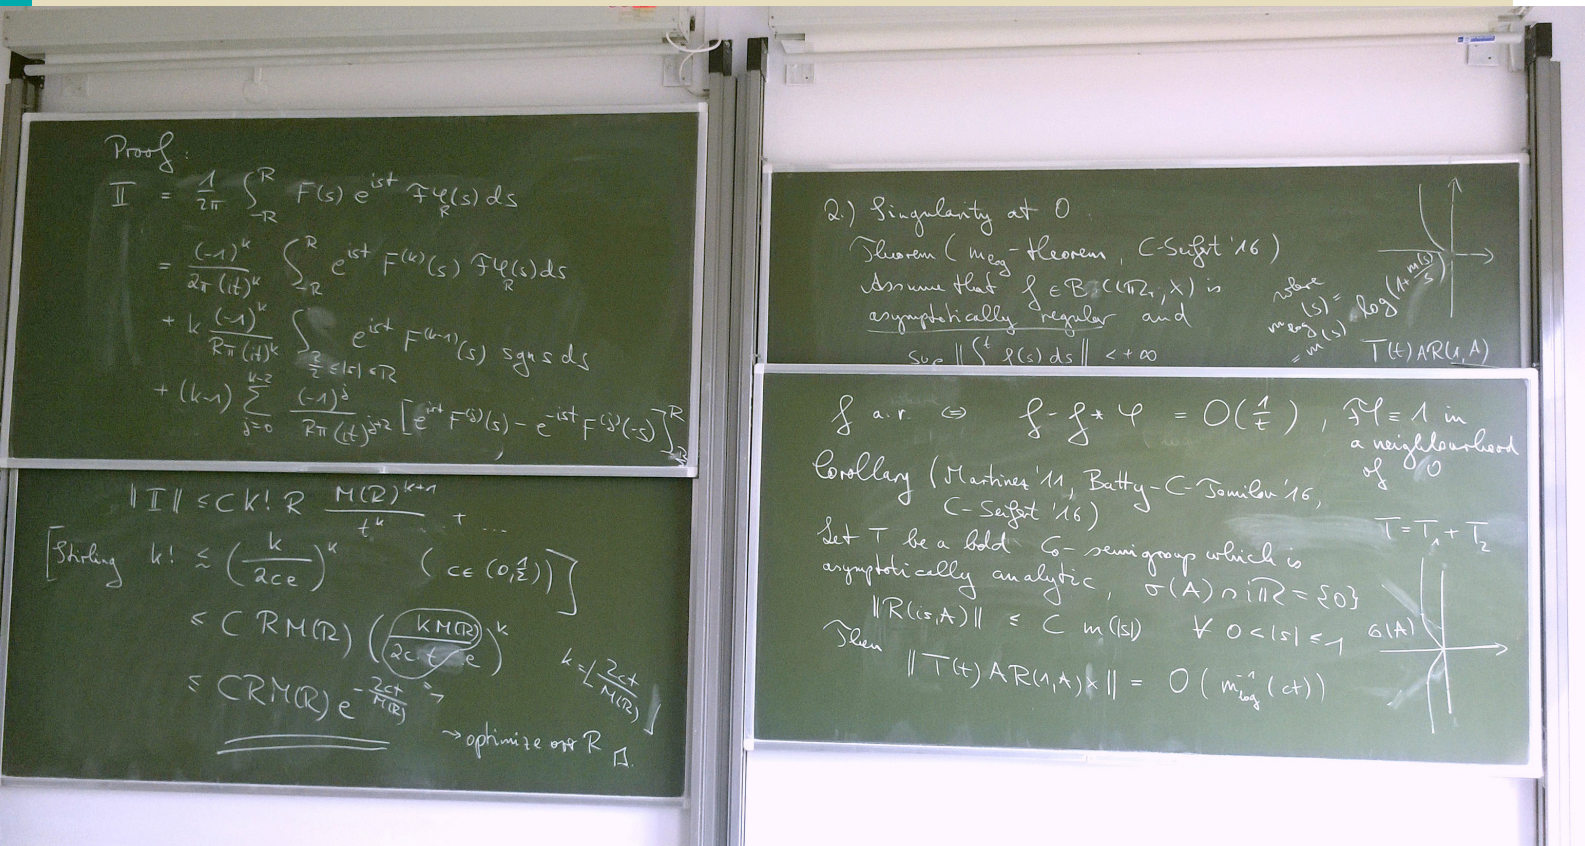 Proof:
II = 1/2π ∫_{-R}^{R} F(s) e^{ist} ℱφ_R(s) ds
= (-1)^k / 2π(it)^k ∫_{-R}^{R} e^{ist} F^{(k)}(s) ℱφ_R(s) ds
+ k (-1)^k / Rπ(it)^k ∫_{R/2≤|s|≤R} e^{ist} F^{(k-1)}(s) sgn s ds
+ (k-1) Σ_{j=0}^{k-2} (-1)^j / Rπ(it)^{j+2} [e^{ist} F^{(j)}(s) - e^{-ist} F^{(j)}(-s)]^R
‖II‖ ≤ C k! R M(R)^{k+1} / t^k + ...
[Stirling k! ≲ (k/2ce)^k (c∈(0,1/2))]
≤ C R M(R) (k M(R) / 2c·t e)^k
k = ⌊2ct/M(R)⌋
≤ C R M(R) e^{-2ct/M(R)}
→ optimize over R □.
2.) Singularity at 0
Theorem (m_log-theorem, C-Seifert '16)
Assume that f ∈ BUC(ℝ+; X) is
asymptotically regular and
sup ‖∫^t f(s) ds‖ < +∞
where
m_log(s) =
= m(s) log(1+ m(s)/s)
T(t)AR(1,A)
f a.r. ⇔ f - f * φ = O(1/t), ℱφ = 1 in
a neighbourhood
of 0
Corollary (Martinez '11, Batty-C-Tomilov '16,
C-Seifert '16)
Let T be a bdd C₀-semigroup which is
asymptotically analytic, σ(A) ∩ iℝ = {0}
T = T₁ + T₂
‖R(is,A)‖ ≤ C m(|s|) ∀ 0<|s|≤1
σ(A)
Then
‖T(t)AR(1,A)x‖ = O(m_log^{-1}(ct))